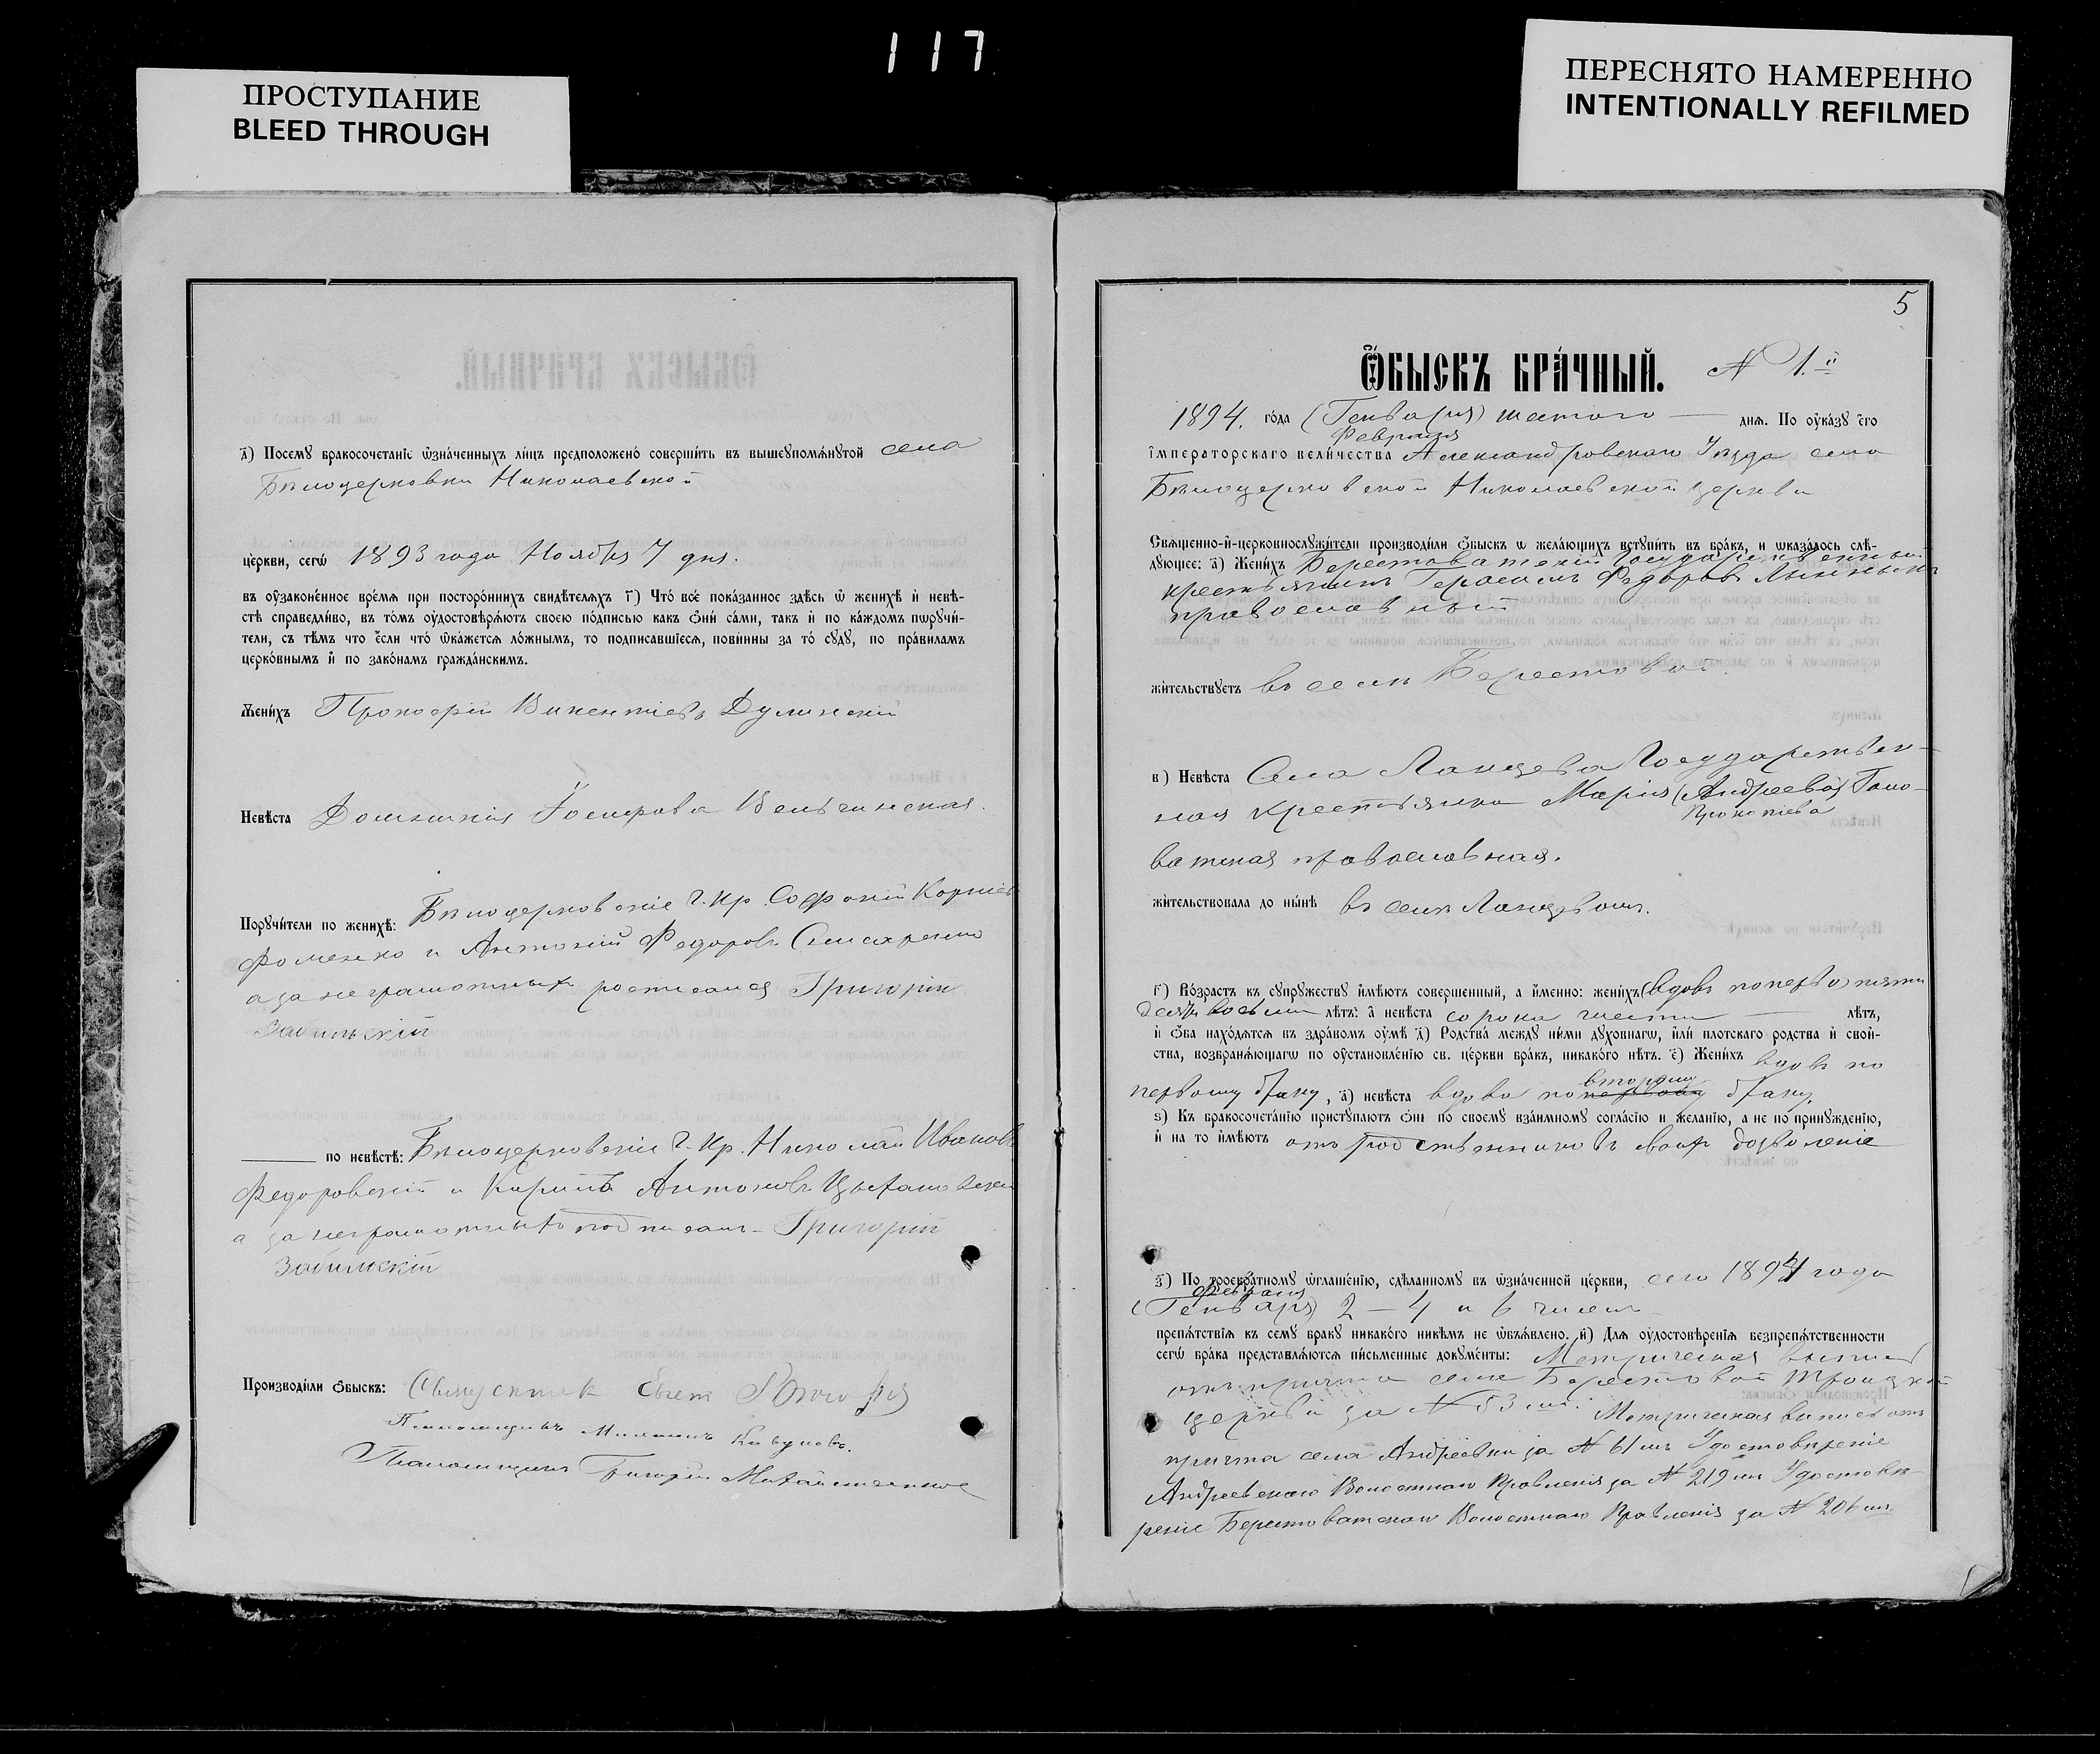 117
ПРОСТУПАНИЕ
BLEED THROUGH
ПЕРЕСНЯТО НАМЕРЕННО
INTENTIONALLY REFILMED
д҃) Посемꙋ бракосочетанїе ѡ҆зна́ченныхъ ли́цъ предположено̀ соверши́ть въ вышеꙋпомѧ́нꙋтой села
Бѣлоцерковки Николаевской
це́ркви, сегѡ̀ 1893 года Ноября 7 дня.
въ ᲂу҆зако́не́нное вре́мѧ при посторо́ннихъ свидѣ́телѧхъ г҃) Что̀ всѐ пока́занное здѣ́сь ѡ҆ женихѣ̀ и҆ невѣ́-
стѣ справедли́во, въ то́мъ ᲂу҆достовѣрѧ́ютъ своею по́дписью какъ ѻ҆нѝ са́ми, такъ и҆ по ка́ждомъ порꙋчи́-
тели, съ тѣ́мъ что є҆́сли что̀ ѡ҆ка́жетсѧ ло́жнымъ, то подписа́вшїесѧ, пови́нны за то̀ сꙋдꙋ̀, по пра́виламъ
церко́внымъ и҆ по зако́намъ гражда́нскимъ.
Жени́хъ Прокофій Викентіевъ Дулинскій
Невѣ́ста Домникія Іосифова Вельчинская.
Порꙋчи́тели по женихѣ̀: Бѣлоцерковскіе Г. Кр. Софроній Корніев
Фоменко и Антоній Федоровъ Слисаренко
а за неграмотных росписался Григорій
Забильскій
по невѣ́стѣ: Бѣлоцерковскіе Г. Кр. Николай Ивановъ
Федоровскій и Кирилъ Антоновъ
а за неграмотныхъ подписалъ Григорій
Забильскій
Производи́ли ѻ҆́быскъ: Священник Евген
Псаломщикъ
Псаломщикъ Григорій Михайличенко
5
Ѻ҆́БЫСКЪ БРА́ЧНЫЙ. N 1.й
1894. го́да (Генваря) шестого дня. По ᲂу҆ка́зꙋ є҆гѡ̀
Февраля
і҆мператорскаго вели́чества Александровскаго Уѣзда села
Бѣлоцерковской Николаевской церкви
Свѧще́нно-и҆-церковнослꙋжи́тели производи́ли ѻ҆́быскъ ѡ҆ жела́ющихъ встꙋпи́ть въ бра́къ, и ѡ҆каза́лось слѣ́-
дꙋющее: а҃) Жени́хъ Берестоватскій Государственный
крестьянинъ Герасимъ Федоровъ
православный
жи́тельствꙋетъ въ селѣ Берестовой.
в҃) Невѣ́ста Села Ланцева Государствен-
ная крестьянка Марія (Андреева) Голо-
Прокопіева
ватская православная.
жи́тельствовала до ны́нѣ въ селѣ Ланцевомъ.
г҃) Во́зрастъ къ сꙋпрꙋ́жествꙋ и҆мѣ́ютъ соверше́нный, а и҆́менно: жени́хъ (вдовъ поперво) пяти
десяти восьми лѣ́тъ: а҆ невѣ́ста сорока шести лѣ́тъ,
и҆ ѻ҆́ба нахо́дѧтсѧ въ здра́вомъ ᲂу҆мѣ̀ д҃) Родства̀ междꙋ ни́ми дꙋхо́внагѡ, и҆лѝ плотскаго родства̀ и҆ свой-
ства, возбранѧ́ющагѡ по ᲂу҆становле́нїю св. це́ркви бра́къ, никако́го нѣ́тъ. є҃) Жени́хъ вдовъ по
первому браку, а҃) невѣ́ста вдова по первому браку,
второму
ѕ҃) Къ бракосочета́нїю пристꙋпа́ютъ ѻ҆нѝ по своемꙋ̀ взаи́мномꙋ согла́сїю и҆ жела́нїю, а не по принꙋжде́нїю,
и҆ на то̀ и҆мѣ́ютъ отъ родственниковъ своих дозволеніе
з҃) По троекра́тномꙋ ѡ҆глаше́нїю, сдѣ́ланномꙋ въ ѡ҆зна́ченной це́ркви, сего 1894 года
Февраля
(Генваря) 2 – 4 и 6 чиселъ
препѧ́тствїѧ къ семꙋ̀ бракꙋ никако́го никѣ́мъ не ѡ҆бъѧ́влено. и҃) Длѧ ᲂу҆достовѣре́нїѧ безпрепѧ́тственности
сегѡ̀ бра́ка представлѧ́ютсѧ пи́сьменные докꙋме́нты: Метрическая выпись
отъ причта села Берестовой Троицкой
церкви за N 53 мъ. Метрическая выпись отъ
причта села Андреевки за N 61 мъ Удостовѣреніе
Андреевскаго Волостнаго Правленія за N 219 мъ Удостовѣ-
реніе Берестоватскаго Волостнаго Правленія за N 206 мъ